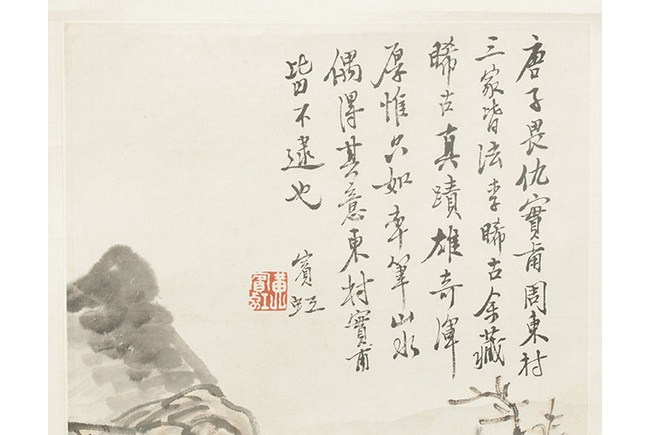 唐子畏仇實甫周東村
三家皆法李晞古余藏
晞古真蹟雄奇渾
厚惟六如率筆山水
偶得其意東村實甫
皆不逮也
賓虹